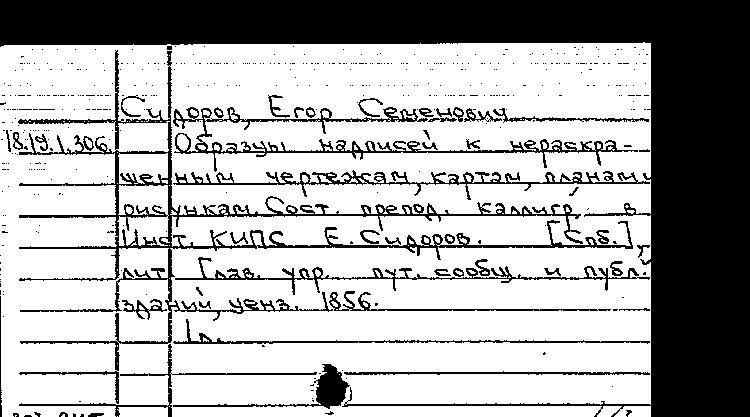 Сидоров, Егор Семенович
18.19.1.306. Образцы надписей к нераскра-
шенным чертежам, картам, планам и
рисункам. Сост. препод. каллигр. в
Инст. КИПС Е. Сидоров. [Спб.],
лит. Глав. упр. пут. сообщ. и публ.
зданий, ценз. 1856.
1 л.